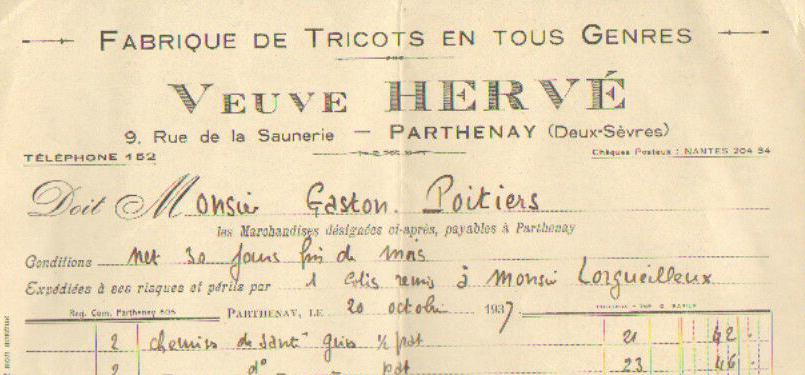 FABRIQUE DE TRICOTS EN TOUS GENRES
VEUVE HERVÉ
9, Rue de la Saunerie — PARTHENAY (Deux-Sèvres)
TÉLÉPHONE 152 Chèques Postaux : NANTES 204 34
Doit Monsieur Gaston. Poitiers
les Marchandises désignées ci-après, payables à Parthenay
Conditions net 30 jours fin de mois
Expédiées à ses risques et périls par 1 colis remis à Monsieur Lorgueilleux
Reg. Com. Parthenay 505 PARTHENAY, LE 20 octobre 1937
2 chemises de santé gris ½ pat 21 42
2 d° pat 23 46